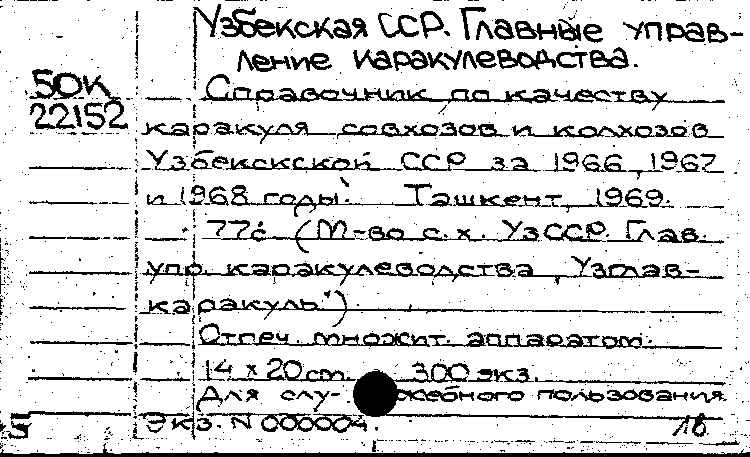 Узбекская ССР. Главные управ-
ление каракулеводства.
50К
22152
Справочник по качеству
каракуля совхозов и колхозов
Узбекскской ССР за 1966, 1967
и 1968 годы. Ташкент, 1969.
77с (М-во с.х. УзССР. Глав.
упр. каракулеводства „Узглав-
каракуль")
Отпеч. множит. аппаратом.
14 x 20 cm. 300 экз.
Для слу- жебного пользования
Экз. N 000004. 18